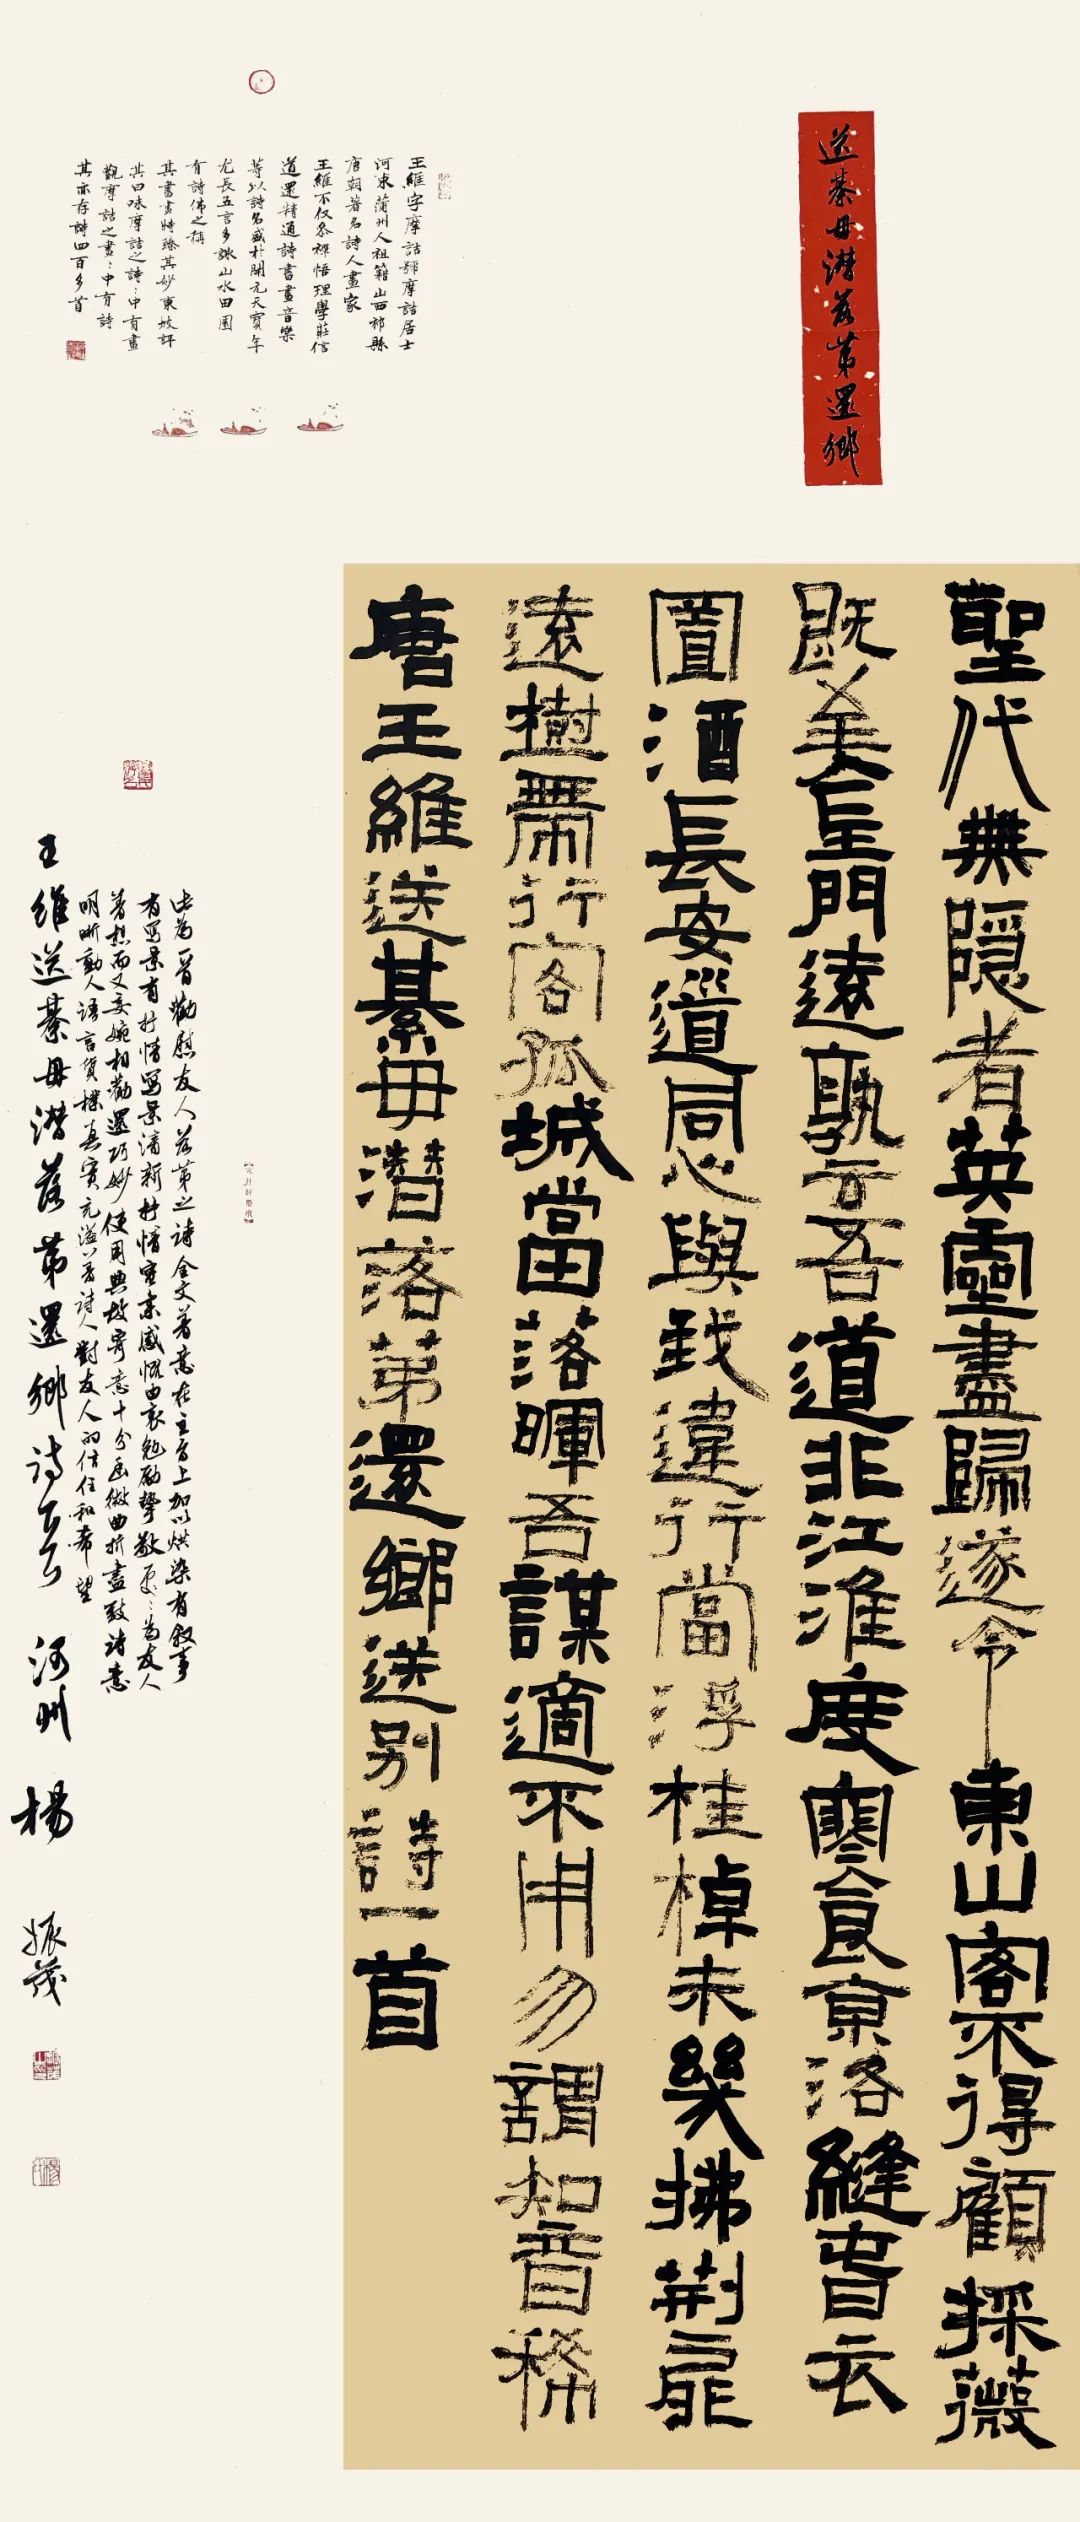 送綦毋潛落第還鄉
聖代無隱者英靈盡歸遂令東山客不得顧採薇
既至門遠孰云吾道非江淮度寒食京洛縫春衣
置酒長安道同心與我違行當浮桂棹未幾拂荊扉
遠樹帶行客孤城當落暉吾謀適不用勿謂知音稀
唐王維送綦毋潛落第還鄉送別詩一首
王維字摩詰號摩詰居士
河東蒲州人祖籍山西祁縣
唐朝著名詩人畫家
王維不仅参禪悟理學莊信
道還精通詩書畫音樂
等以詩名盛於開元天寶年
尤長五言多詠山水田園
有詩佛之稱
其書畫特臻其妙東坡評
其曰味摩詰之詩:中有畫
觀摩詰之畫:中有詩
其亦存詩四百多首
此為一首勸慰友人落第之詩全文着意在主旨上加以烘染有叙事
有寫景有抒情寫景清新抒情感慨由衷勉勵摯敬:為友人
着想而又委婉相勸還巧妙使用典故寄意十分幽微曲折盡致詩意
明晰動人語言質樸真實充溢着詩人對友人的信任和希望
王維送綦毋潛落第還鄉詩 河州 楊振茂